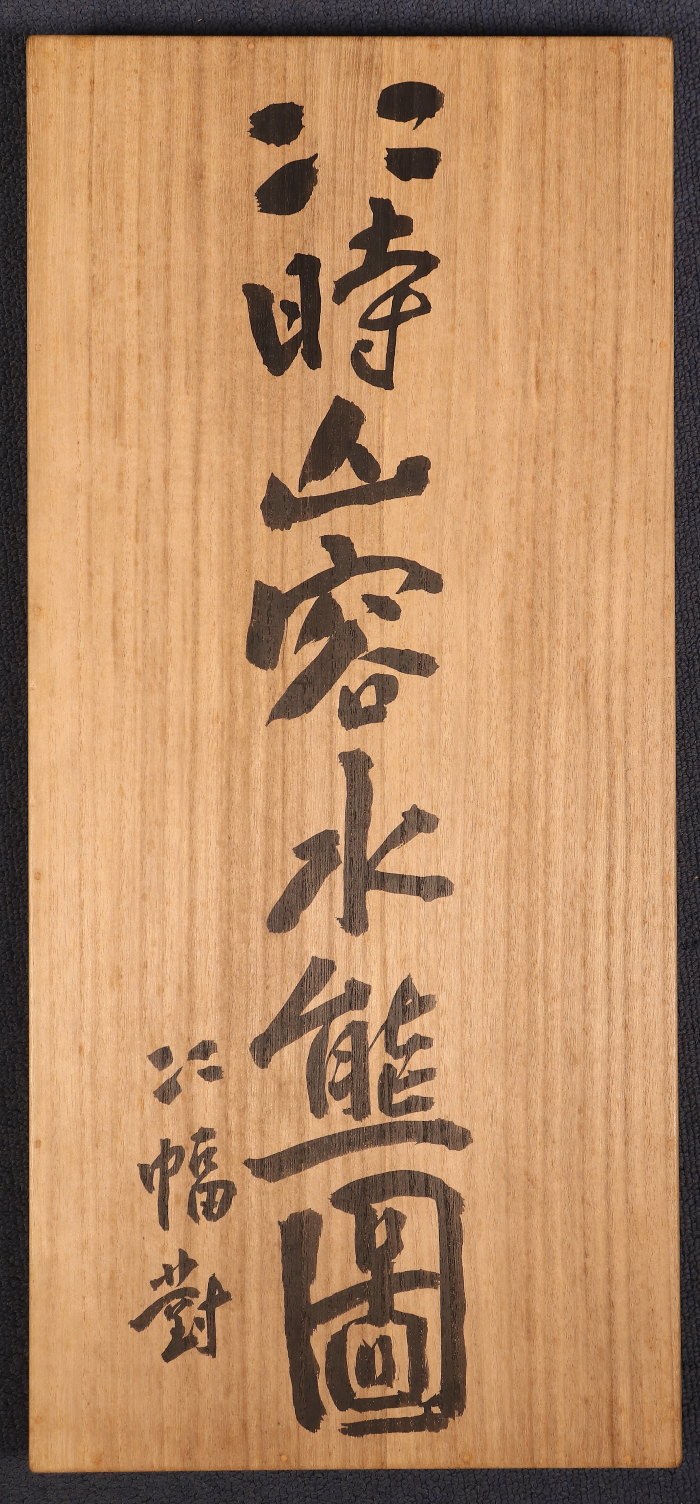 四時山容水態圖
四幅對